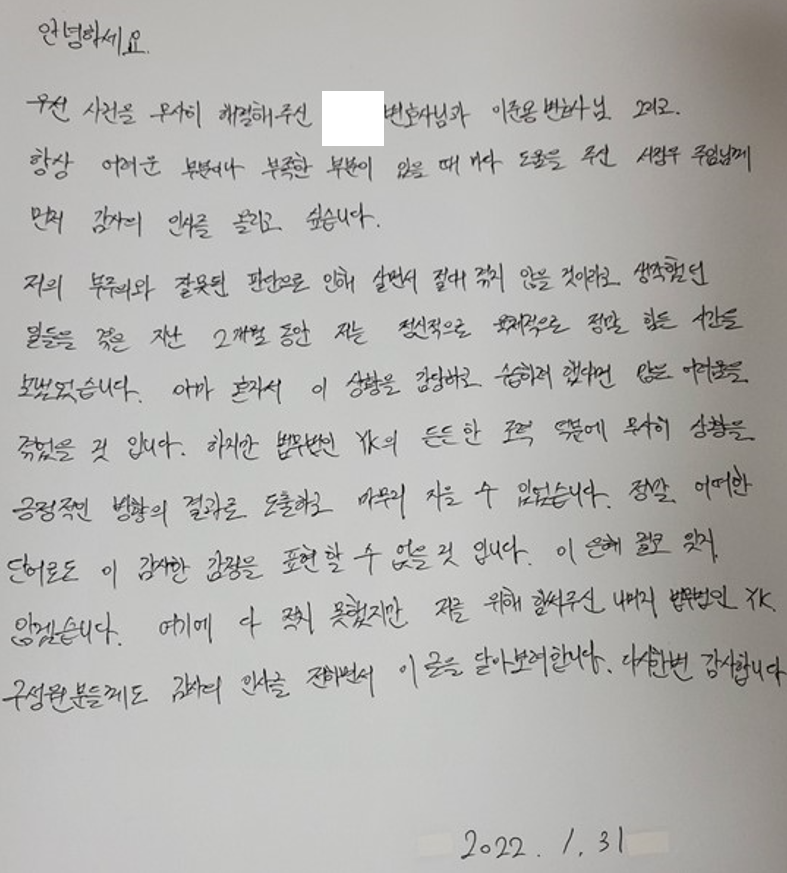 안녕하세요.
우선 사건을 무사히 해결해주신 변호사님과 이준용 변호사님 그리고.
항상 어려운 부분이나 부족한 부분이 있을 때 마다 도움을 주신 서정우 주임님께
먼저 감사의 인사를 올리고 싶습니다.
저의 부주의와 잘못된 판단으로 인해 살면서 절대 겪지 않을 것이라고 생각했던
일들을 겪은 지난 2개월 동안 저는 정신적으로 육체적으로 정말 힘든 시간을
보냈었습니다. 아마 혼자서 이 상황을 감당하고 수습하려 했다면 많은 어려움을
겪었을 것 입니다. 하지만 법무법인 YK의 든든한 조력 덕분에 무사히 상황을
긍정적인 방향의 결과로 도출하고 마무리 지을 수 있었습니다. 정말 어떠한
단어로도 이 감사한 감정을 표현 할 수 없을 것 입니다. 이 은혜 결코 잊지
않겠습니다. 여기에 다 적지 못했지만 저를 위해 힘써주신 나머지 법무법인 YK
구성원분들께도 감사의 인사를 전하면서 이 글을 닫아보려합니다. 다시한번 감사합니다
2022. 1. 31